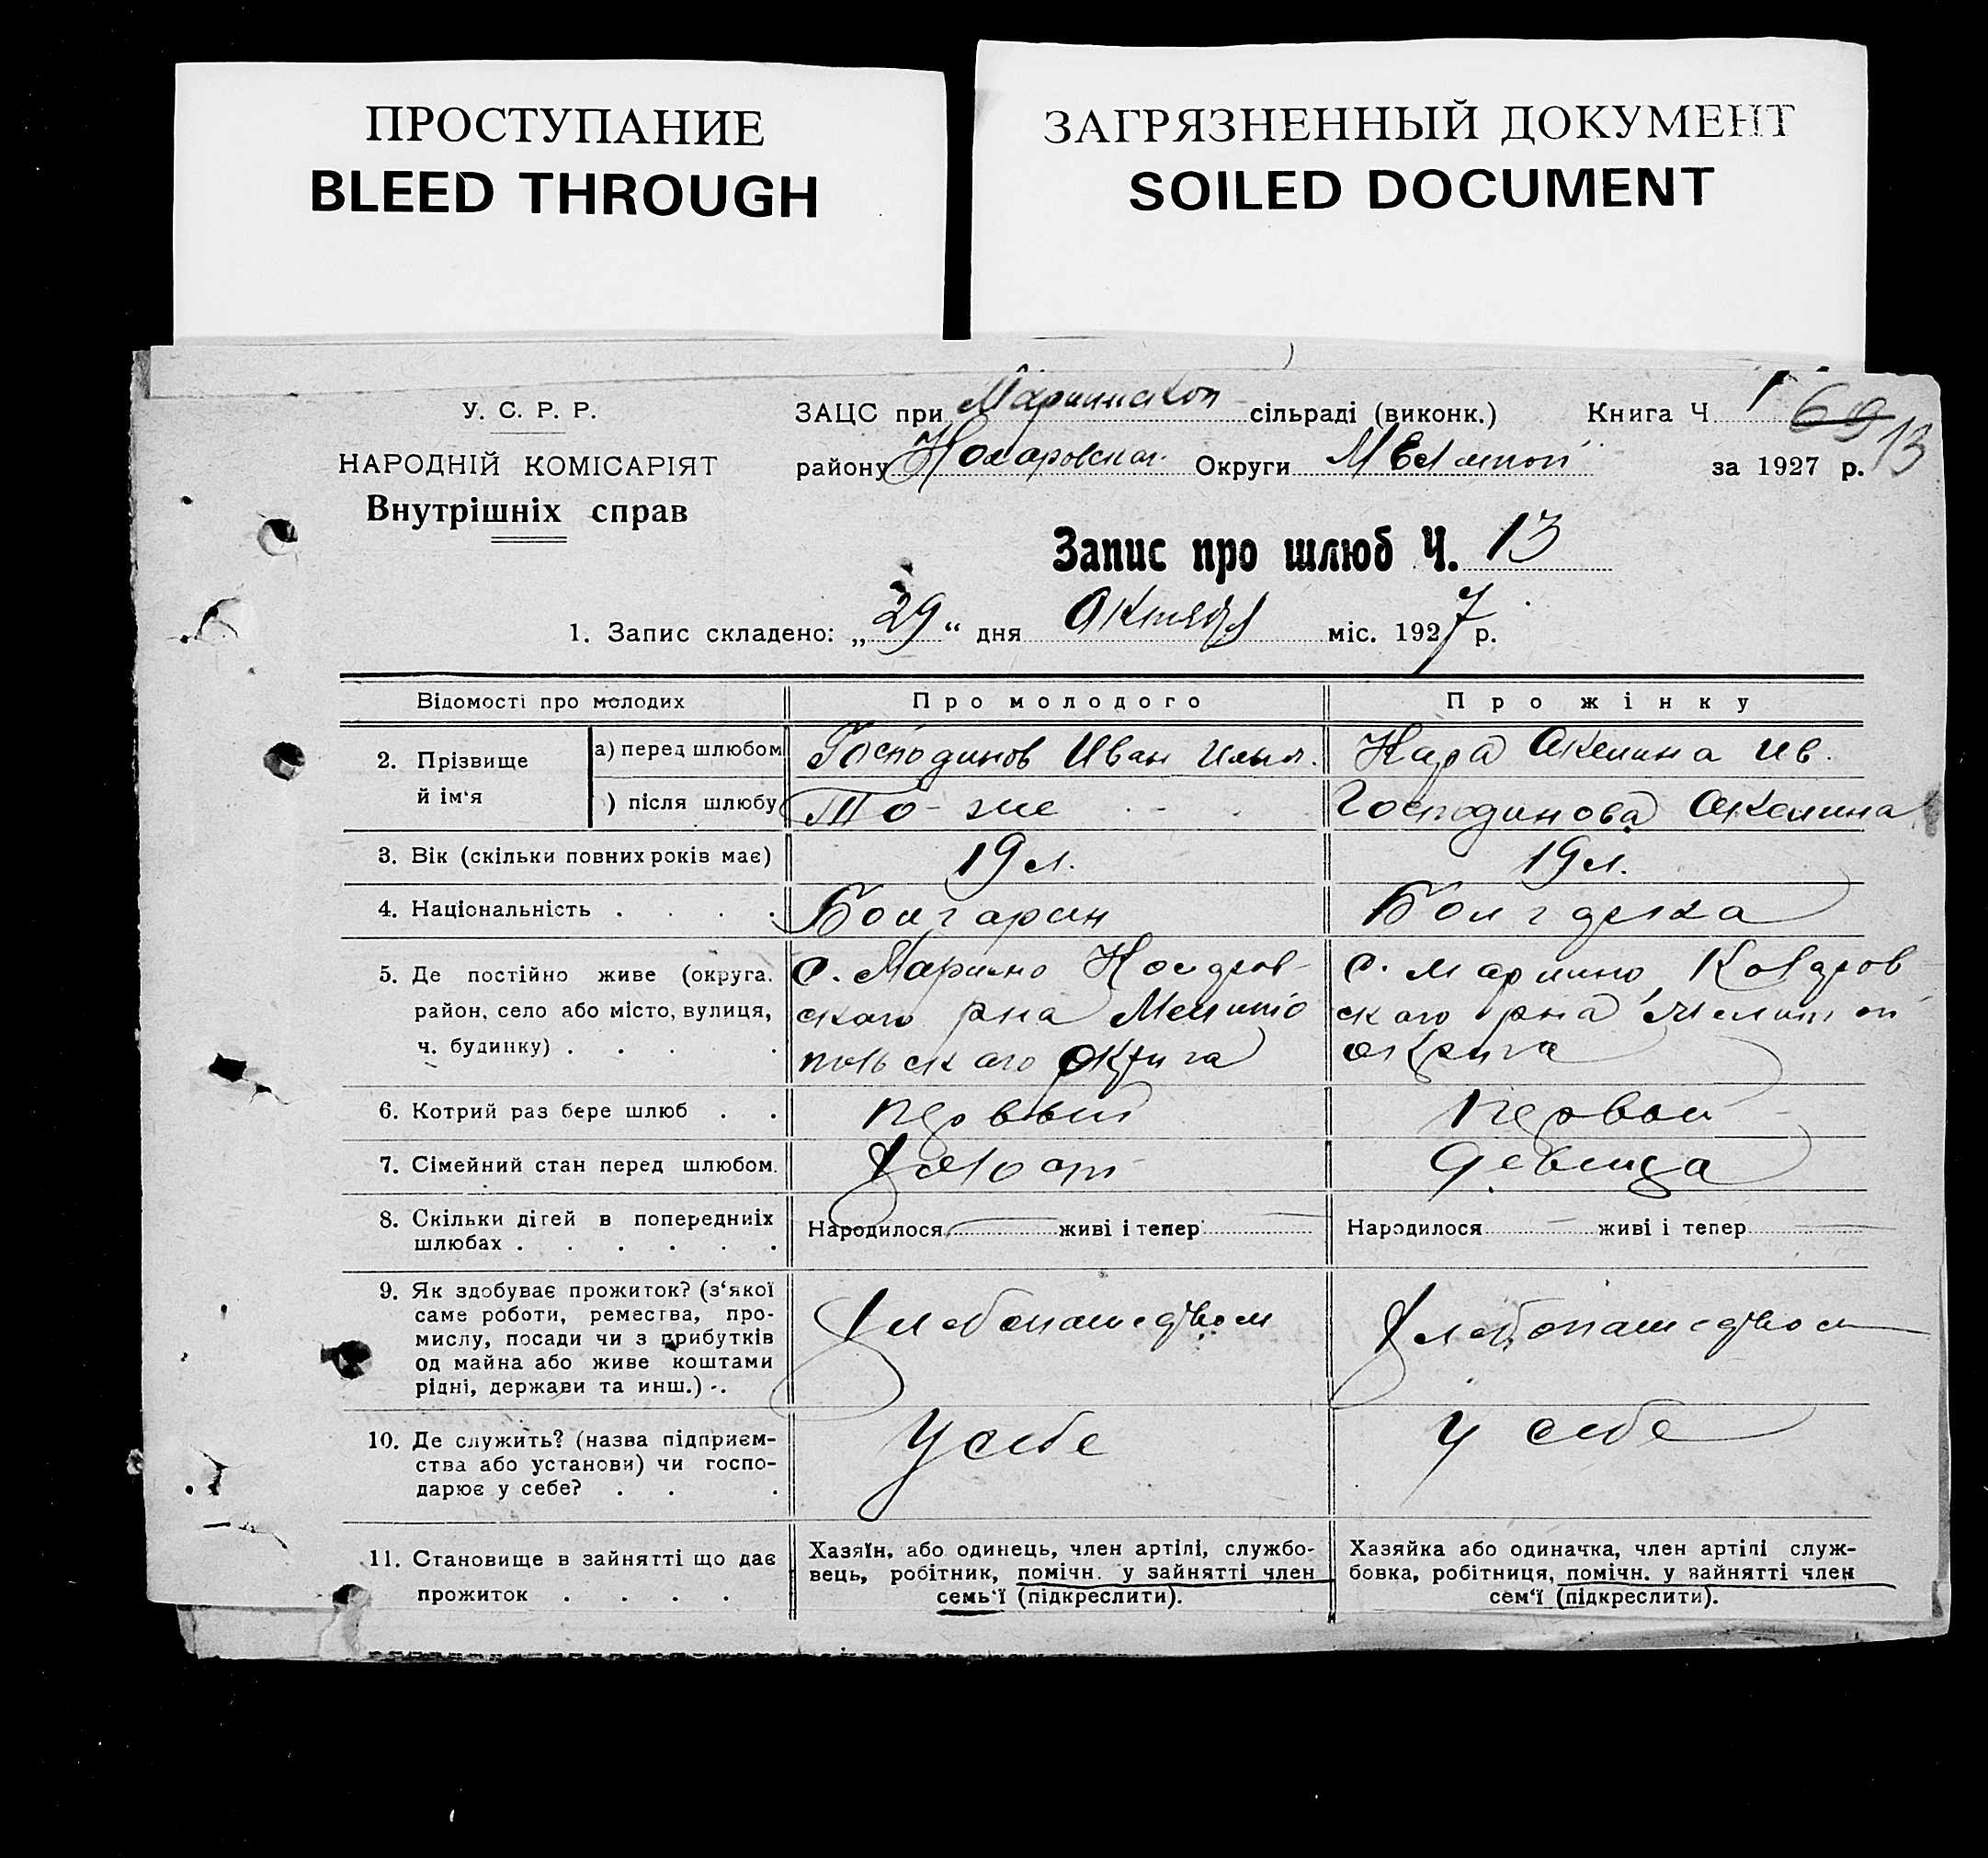 ПРОСТУПАНИЕ
BLEED THROUGH
ЗАГРЯЗНЕННЫЙ ДОКУМЕНТ
SOILED DOCUMENT
У. С. Р. Р.
НАРОДНІЙ КОМІСАРІЯТ
Внутрішніх справ
ЗАЦС при сільраді (виконк.) Книга Ч 1 69 13
району Округи Мелитоп за 1927 р.
Запис про шлюб Ч. 13
1. Запис складено: „29“ дня Октября міс. 1927 р.
Відомості про молодих Про молодого Про жінку
2. Прізвище й ім'я
а) перед шлюбом Господинов Иван Ильич. Кара Акелина Ив.
) після шлюбу То-же Господинова Акелина
3. Вік (скільки повних років має) 19 л. 19 л.
4. Національність . . . . Болгарин Болгарка
5. Де постійно живе (округа.
район, село або місто, вулиця,
ч. будинку) . . . .
с. Марино
ского рна Мелито
польского округа
с. Марино
ского рна Мелитоп
округа
6. Котрий раз бере шлюб . . Первый Первой
7. Сімейний стан перед шлюбом. Холост Девица
8. Скільки дітей в попередниіх
шлюбах . . . . . .
Народилося живі і тепер Народилося живі і тепер
9. Як здобуває прожиток? (з'якої
саме роботи, ремества, про-
мислу, посади чи з прибутків
од майна або живе коштами
рідні, держави та инш.) .
Хлебопашеством Хлебопашеством
10. Де служить? (назва підприєм-
ства або установи) чи госпо-
дарює у себе? . . .
У себе У себе
11. Становище в зайнятті що дає
прожиток . . . .
Хазяїн, або одинець, член артілі, службо-
вець, робітник, помічн. у зайнятті член
семь'ї (підкреслити).
Хазяйка або одиначка, член артілі служ-
бовка, робітниця, помічн. у зайнятті член
сем'ї (підкреслити).